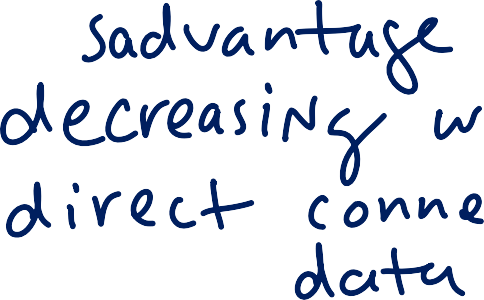 sadvantage
decreasing w
direct conne
data